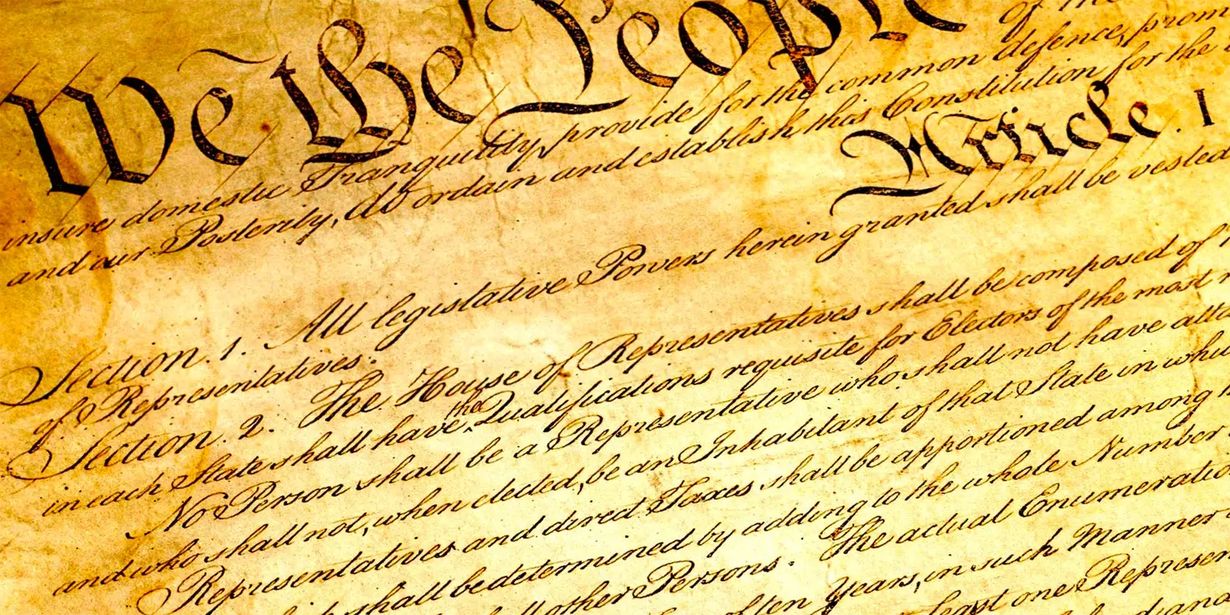 We the People
of the
insure domestic Tranquility, provide for the common defence, prom
and our Posterity, do ordain and establish this Constitution for the
Article. I
Section. 1. All legislative Powers herein granted shall be vested
of Representatives.
Section. 2. The House of Representatives shall be composed of
in each State shall have the Qualifications requisite for Electors of the most
No Person shall be a Representative who shall not have atta
and who shall not, when elected, be an Inhabitant of that State in whi
Representatives and direct Taxes shall be apportioned among
shall be determined by adding to the whole Number
all other Persons. The actual Enumerati
of ten Years, in such Manner
least one Represen